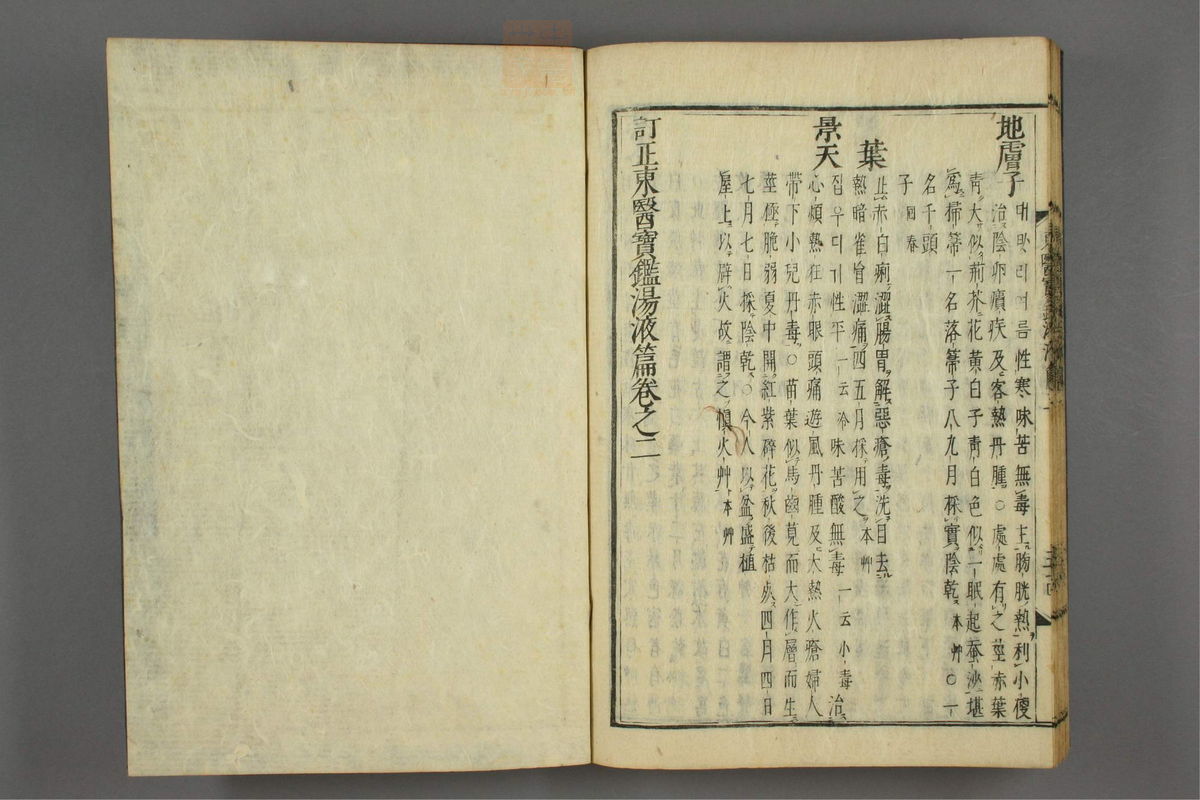 地膚子 대ᄡᆞ리여름性寒味苦無毒主膀胱熱利小便
治陰卵㿉疾及客熱丹腫○處處有之莖赤葉
靑大似荊芥花黃白子靑白色似一眠起蚕沙堪
爲掃箒一名落箒子八九月採實陰乾本艸○一
名千頭
子回春
葉 止赤白痢澀腸胃解惡瘡毒洗目去
熱暗雀盲澀痛四五月採用之本艸
景天 집우디기性平一云冷味苦酸無毒一云小毒治
心煩熱狂赤眼頭痛遊風丹腫及大熱火瘡婦人
帶下小兒丹毒○苗葉似馬齒莧而大作層而生
莖極脆弱夏中開紅紫碎花秋後枯死四月四日
七月七日採陰乾○今人以盆盛植
屋上以辟火故謂之愼火艸本艸
訂正東醫寶鑑湯液篇卷之二